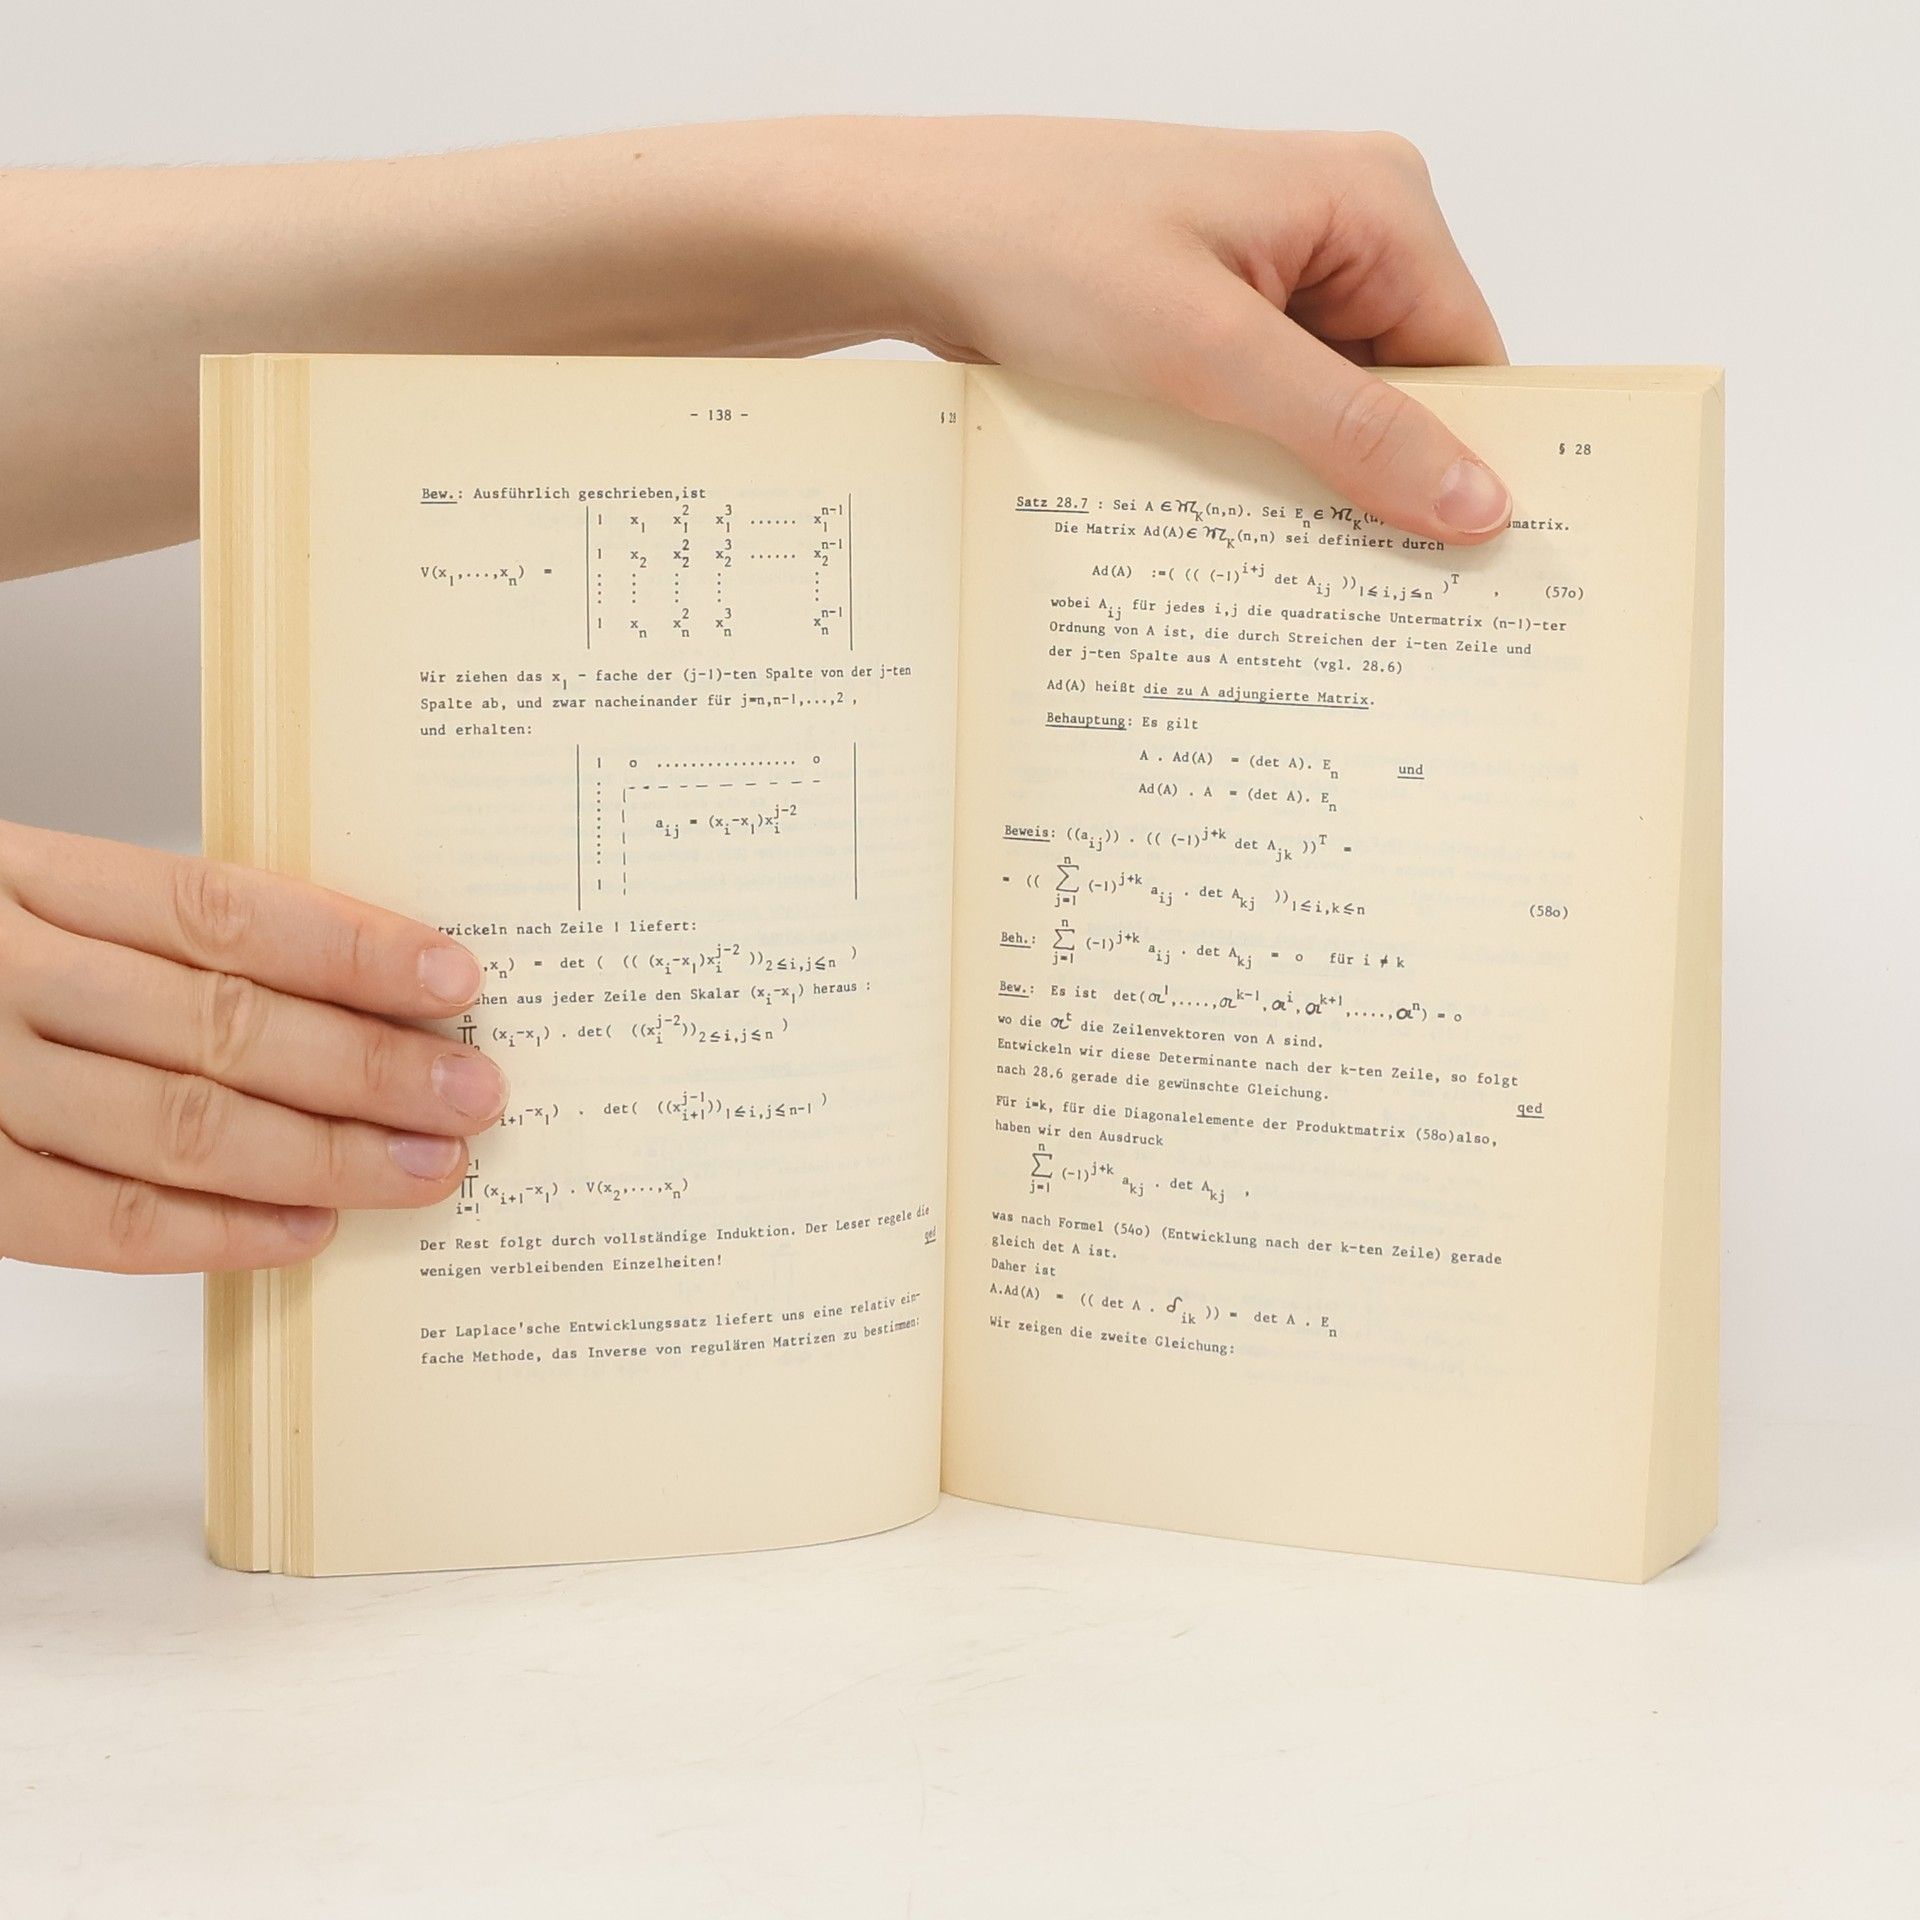 - 138 -
§ 28
Bew.: Ausführlich geschrieben,ist
1 x₁ x₁² x₁³ ...... x₁ⁿ⁻¹
1 x₂ x₂² x₂³ ...... x₂ⁿ⁻¹
V(x₁,...,xₙ) =
1 xₙ xₙ² xₙ³ xₙⁿ⁻¹
Wir ziehen das x₁ - fache der (j-1)-ten Spalte von der j-ten
Spalte ab, und zwar nacheinander für j=n,n-1,...,2 ,
und erhalten:
1 o ................. o
a_ij = (x_i-x₁)x_i^{j-2}
1
nach Zeile 1 liefert:
,xₙ) = det ( (( (x_i-x₁)x_i^{j-2} ))_{2≤i,j≤n} )
aus jeder Zeile den Skalar (x_i-x₁) heraus :
n
∏ (x_i-x₁) . det( ((x_i^{j-2}))_{2≤i,j≤n} )
_{i+1}-x₁) . det( ((x_{i+1}^{j-1}))_{1≤i,j≤n-1} )
-1
∏ (x_{i+1}-x₁) . V(x₂,...,xₙ)
i=1
Der Rest folgt durch vollständige Induktion. Der Leser regele die
wenigen verbleibenden Einzelheiten!
qed
Der Laplace'sche Entwicklungssatz liefert uns eine relativ ein-
fache Methode, das Inverse von regulären Matrizen zu bestimmen:
§ 28
Satz 28.7 : Sei A ∈ 𝔐_K(n,n). Sei Eₙ ∈ 𝔐_K(n,
Die Matrix Ad(A)∈ 𝔐_K(n,n) sei definiert durch
Ad(A) :=( (( (-1)^{i+j} det A_ij ))_{1≤i,j≤n} )^T , (57o)
wobei A_ij für jedes i,j die quadratische Untermatrix (n-1)-ter
Ordnung von A ist, die durch Streichen der i-ten Zeile und
der j-ten Spalte aus A entsteht (vgl. 28.6)
Ad(A) heißt die zu A adjungierte Matrix.
Behauptung: Es gilt
A . Ad(A) = (det A). Eₙ und
Ad(A) . A = (det A). Eₙ
Beweis: ((a_ij)) . (( (-1)^{j+k} det A_jk ))^T =
= (( ∑_{j=1}^{n} (-1)^{j+k} a_ij . det A_kj ))_{1≤i,k≤n} (58o)
Beh.: ∑_{j=1}^{n} (-1)^{j+k} a_ij . det A_kj = o für i ≠ k
Bew.: Es ist det(𝔞¹,....,𝔞^{k-1},𝔞^i,𝔞^{k+1},....,𝔞ⁿ) = o
wo die 𝔞^t die Zeilenvektoren von A sind.
Entwickeln wir diese Determinante nach der k-ten Zeile, so folgt
nach 28.6 gerade die gewünschte Gleichung.
qed
Für i=k, für die Diagonalelemente der Produktmatrix (58o)also,
haben wir den Ausdruck
∑_{j=1}^{n} (-1)^{j+k} a_kj . det A_kj ,
was nach Formel (54o) (Entwicklung nach der k-ten Zeile) gerade
gleich det A ist.
Daher ist
A.Ad(A) = (( det A . δ_ik )) = det A . Eₙ
Wir zeigen die zweite Gleichung: